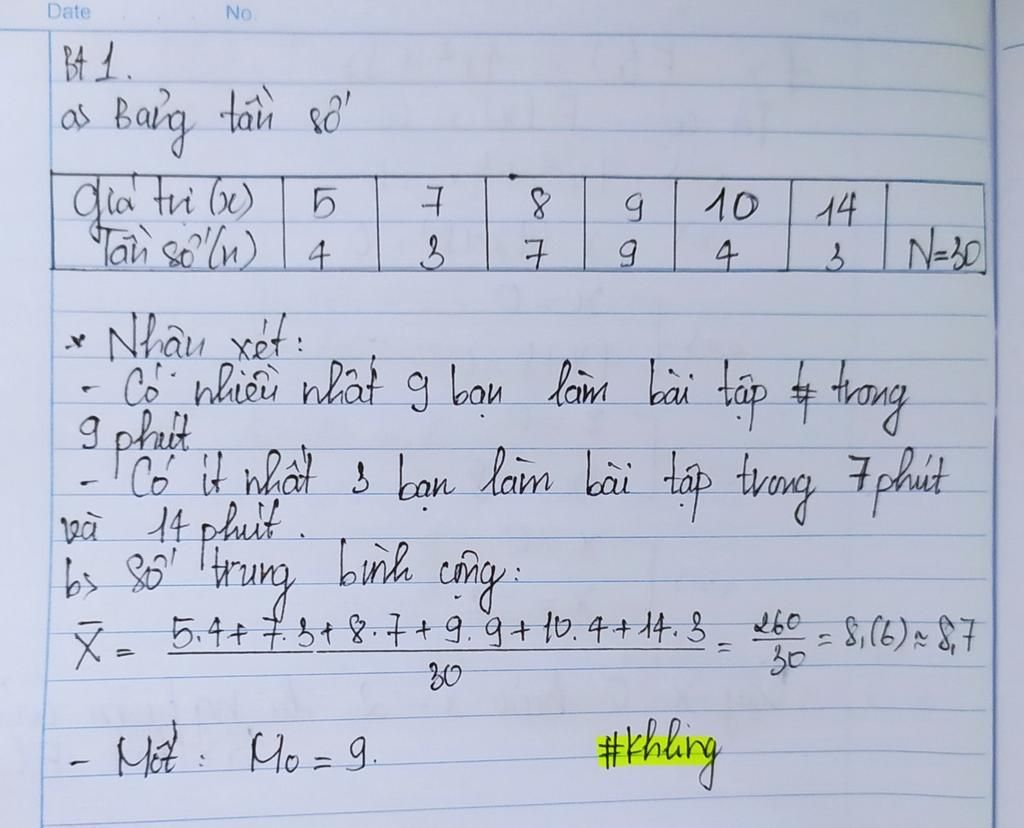 Date No.
Bt 1.
a) Bảng tần số
Giá trị (x) 5 7 8 9 10 14
Tần số (n) 4 3 7 9 4 3 N=30
* Nhận xét:
- Có nhiều nhất 9 bạn làm bài tập trong
9 phút
- Có ít nhất 3 bạn làm bài tập trong 7 phút
và 14 phút.
b) Số trung bình cộng:
X̄ = (5.4 + 7.3 + 8.7 + 9.9 + 10.4 + 14.3)/30 = 260/30 = 8,(6) ≈ 8,7
- Mốt: M₀ = 9.
#khling